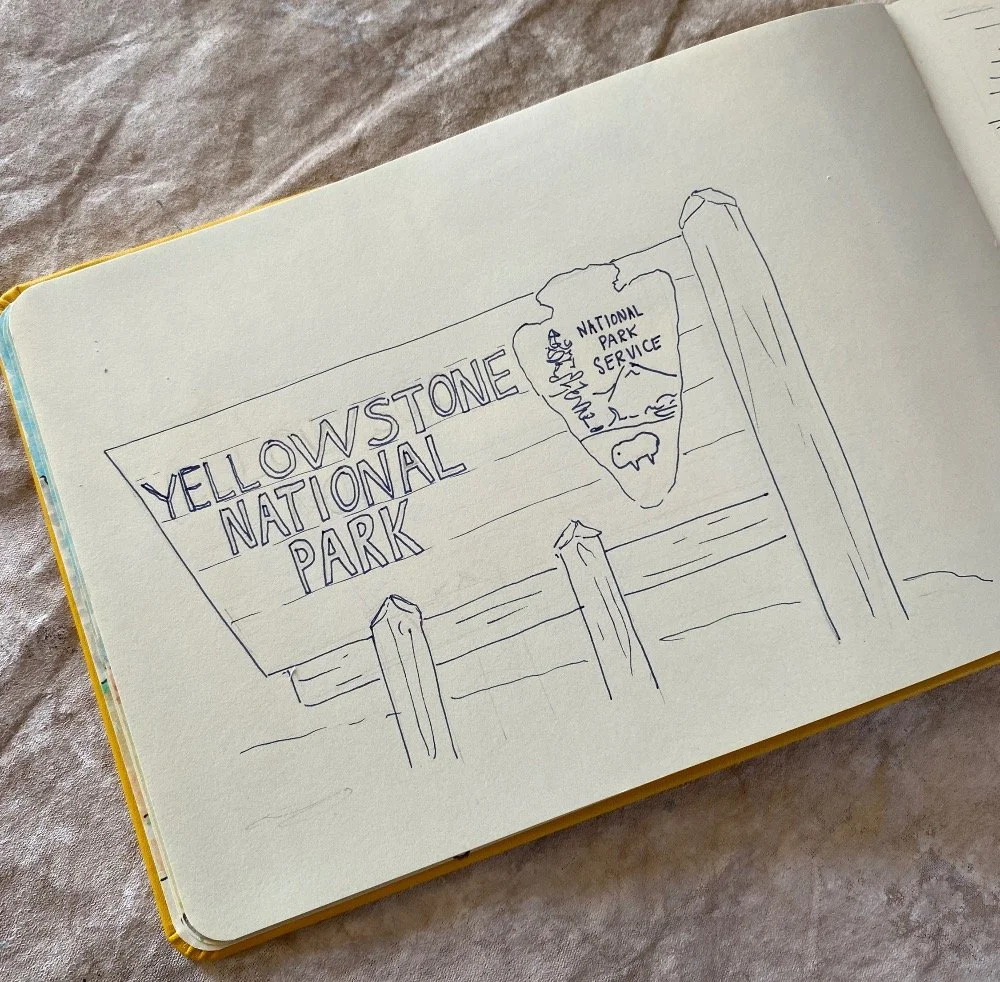 YELLOWSTONE
NATIONAL
PARK
NATIONAL
PARK
SERVICE